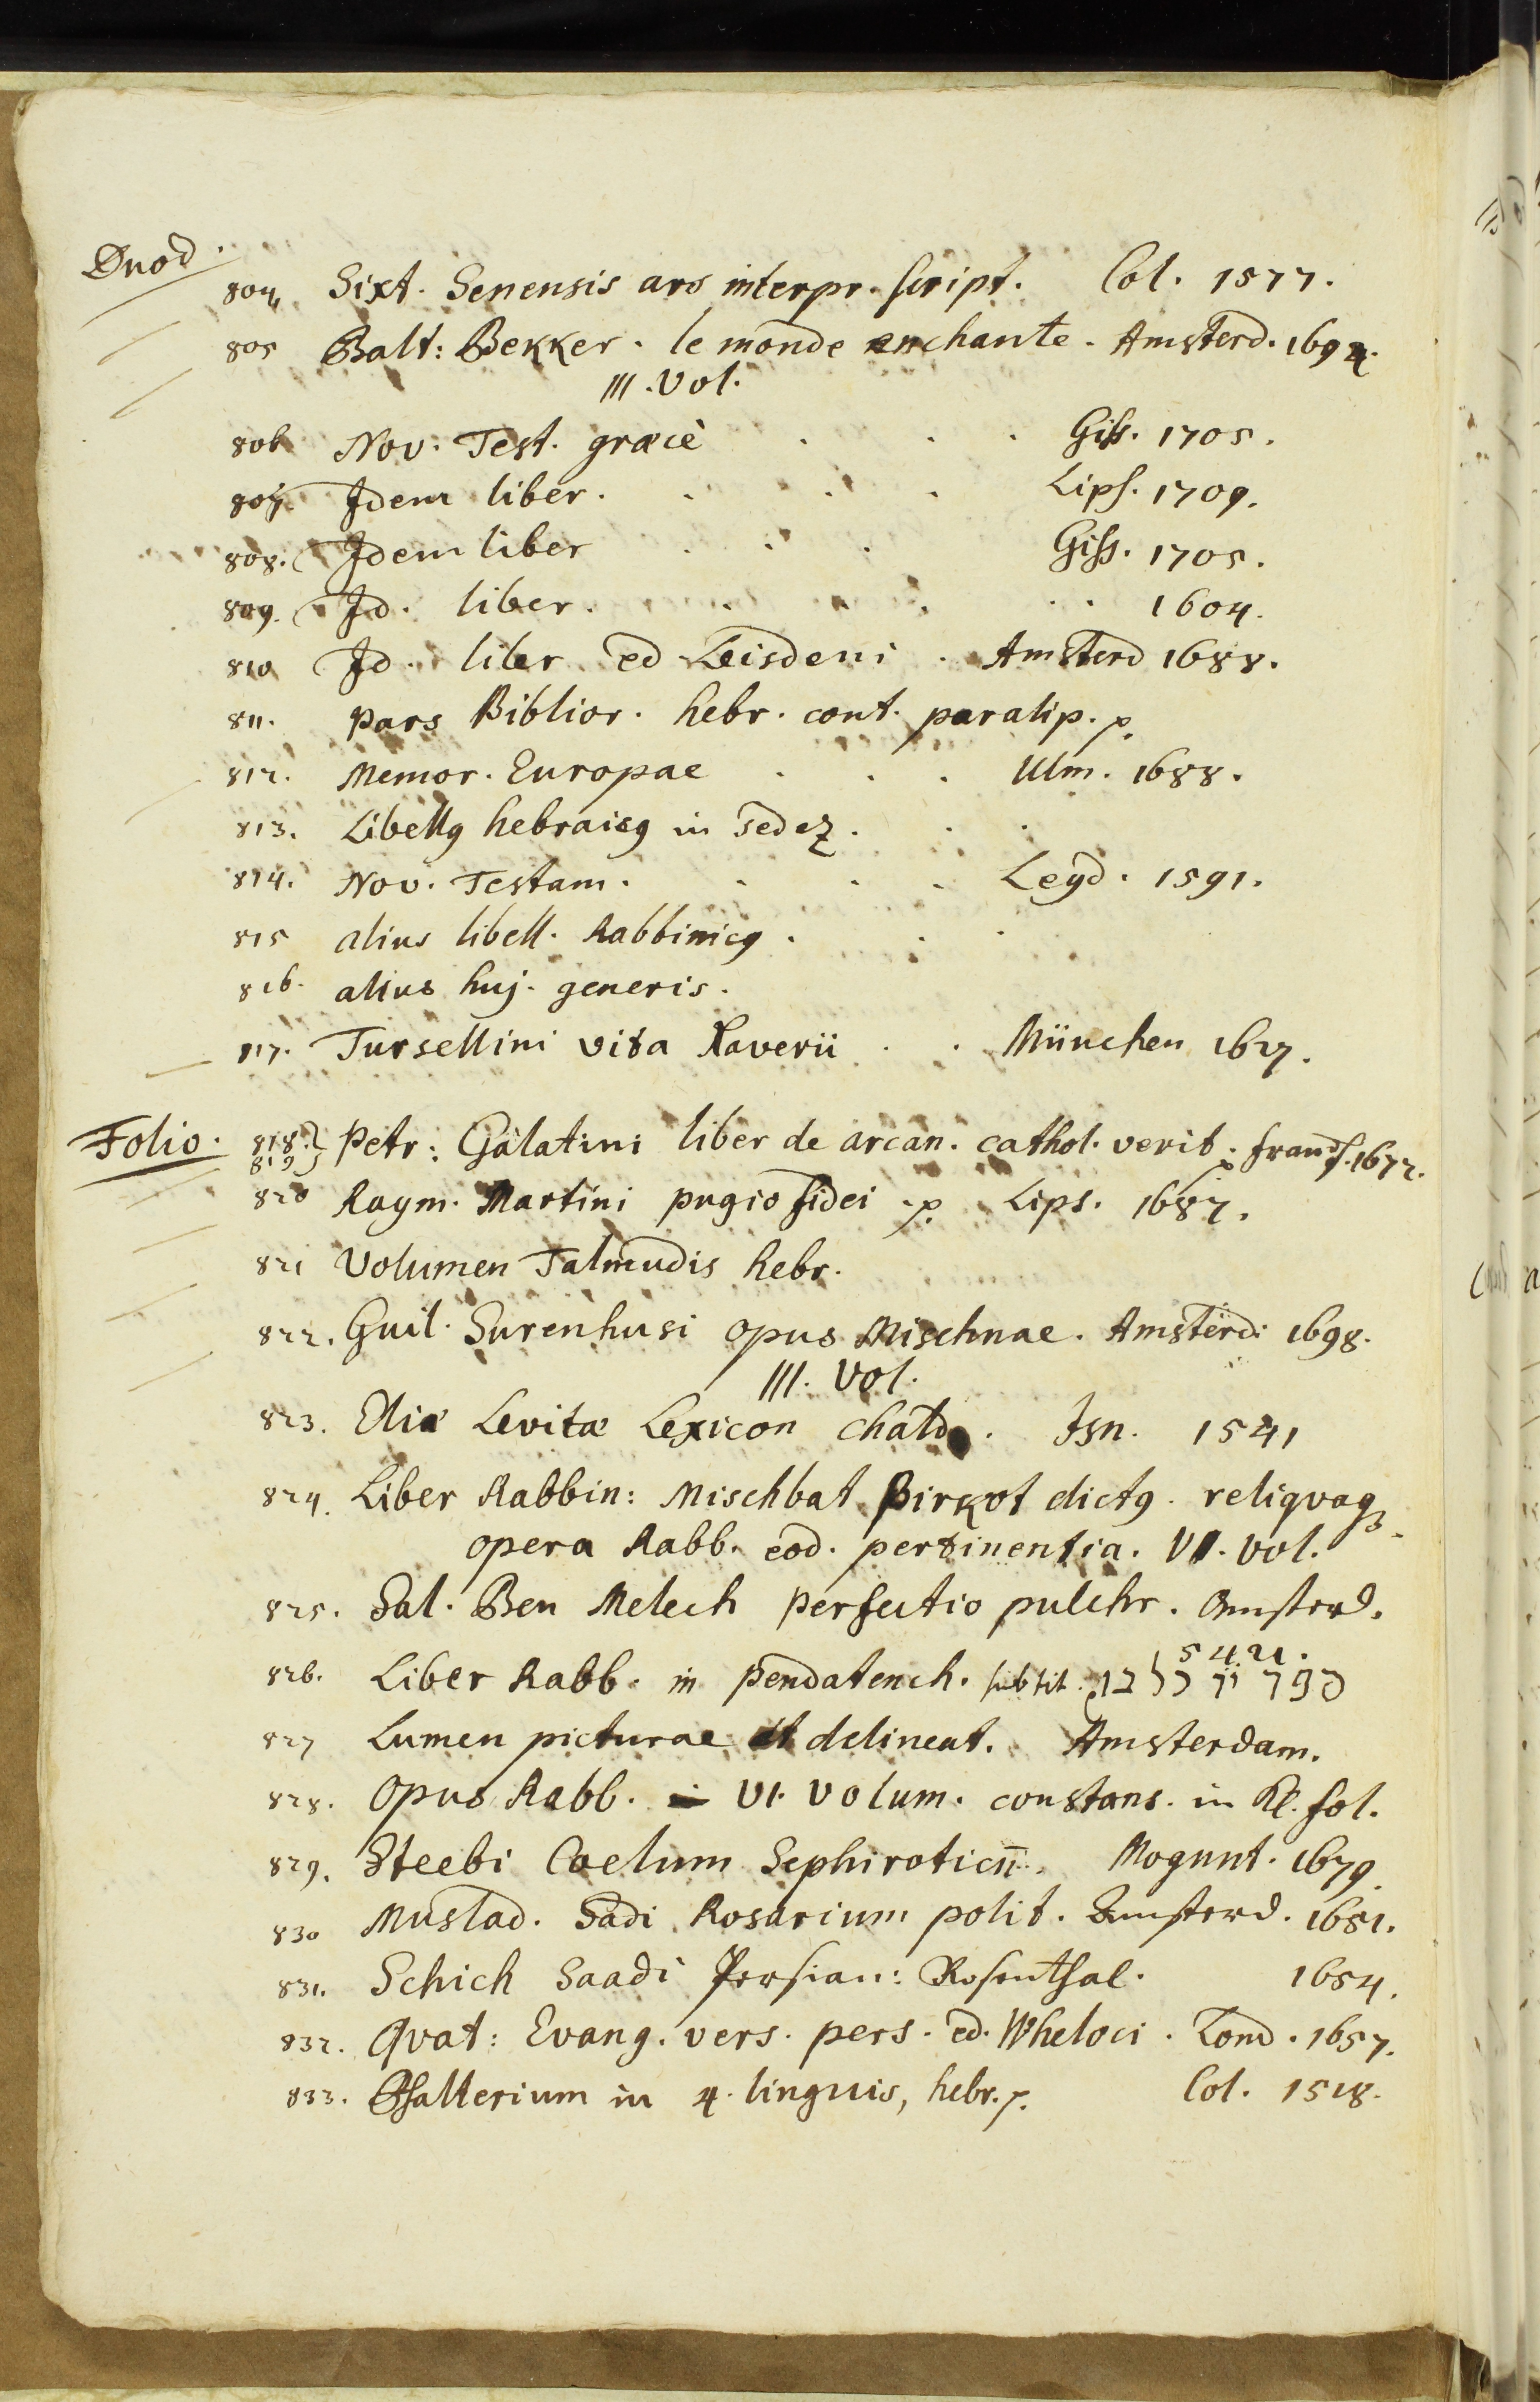 Duod.
804 Sixt. Senensis ars interpr. script. Col. 1577.
805 Balt: Bekker. le monde enchante. Amsterd. 1694.
III. Vol.
806 Nov. Test. græcè . . . Giss. 1705.
807. Idem liber. . . . Lips. 1709.
808. Idem liber . . . Giss. 1705.
809. Id. liber. . . . . . 1604.
810 Id. liber ed Leisdeni. Amsterd 1688.
811. Pars Biblior. hebr. cont. paralip. p.
812. Memor. Europae . . . Ulm. 1688.
813. Libellg hebraicg in Sedez. . .
814. Nov. Testam. . . . Leyd. 1591.
815 alius libell. Rabbinicg . . .
816. alius huj. generis.
817. Tursellini vita Xaverii . . München 1627.
Folio. 818. 819 } Petr: Galatini liber de arcan. cathol. verit. p. Francf. 1672.
820 Raym. Martini pugio fidei p. Lips. 1687.
821 Volumen Talmudis hebr.
822. Guil. Surenhusi opus Mischnae. Amsterd: 1698.
III. Vol.
823. Eliæ Levitæ Lexicon Chald. Isn. 1541
824. Liber Rabbin: Mischbat Birkot dictg. reliqvaq3
opera Rabb. eod. pertinentia. VI. Vol.
825. Sal. Ben Melech perfectio pulchr. Amsterd.
5421.
826. Liber Rabb. in pendatench. subtit. ספר
827 Lumen picturae et delineat. Amsterdam.
828. Opus Rabb. VI. Volum. constans. in Kl. fol.
829. Steebi Coelum Sephiroticū. Mogunt. 1679.
830 Muslad. Sadi Rosarium polit. Amsterd. 1651.
831. Schich Saadi Persian: Rosenthal. 1654.
832. Qvat: Evang. vers. pers. ed. Wheloci. Lond. 1657.
833. Psalterium in 4. linguis, hebr. p. Col. 1518.